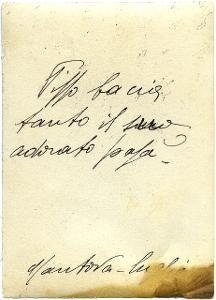 Pippo bacia
tanto il suo
adorato papà
Mantova - Luglio